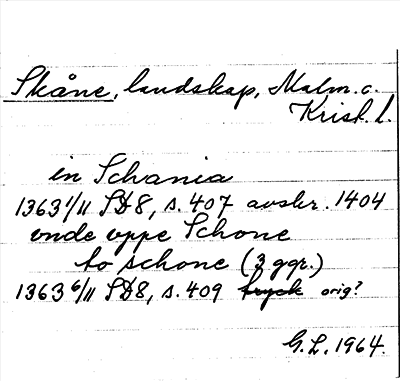 Skåne, landskap, Malm. o.
Krist. l.
in Schania
1363 1/11 SD8, s. 407 avskr. 1404
vnde vppe Schone
to schone (3 ggr.)
1363 6/11 SD8, s. 409 tryck orig?
G.L. 1964.